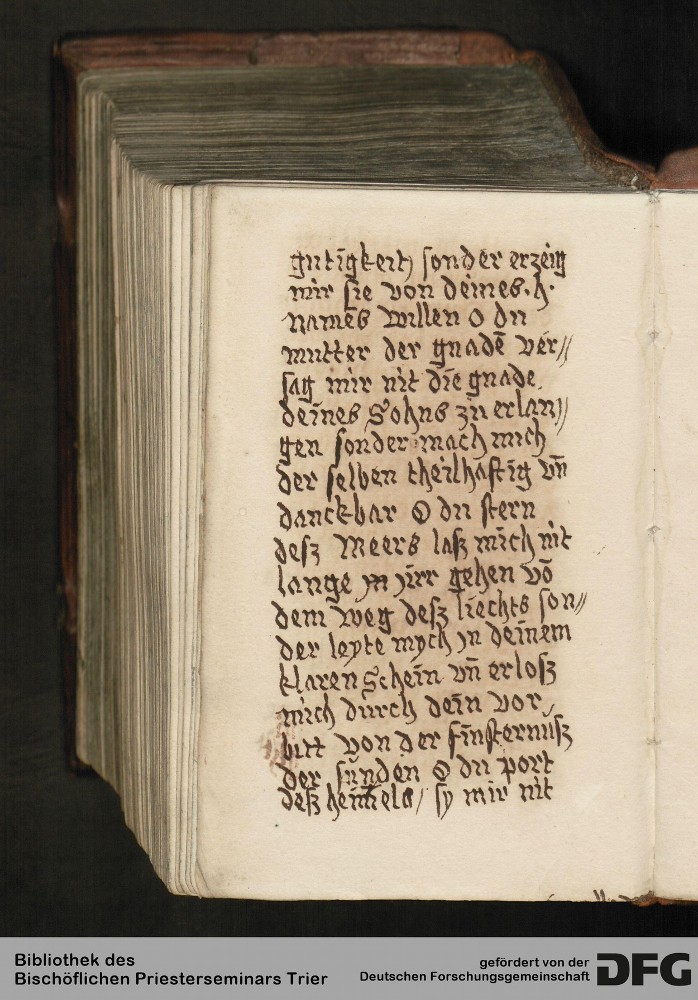 gutigkeit, sonder erzeig
mir sie von deines .h.
names willen o du
mutter der gnadē ver//
sag mir nit die gnade
deines Sohns zu erlan//
gen sonder mach mich
der selben theilhaftig vn̄
danckbar O du stern
desz Meers lasz mich nit
lange yn yrr gehen vō
dem weg desz liechts son//
der leyte mych yn deinem
klaren Schein vn̄ erlosz
mich durch dein vor//
bitt von der finsternüsz
der sünden O du port
desz heim̄els / sy mir nit
Bibliothek des
Bischöflichen Priesterseminars Trier
gefördert von der
Deutschen Forschungsgemeinschaft
DFG